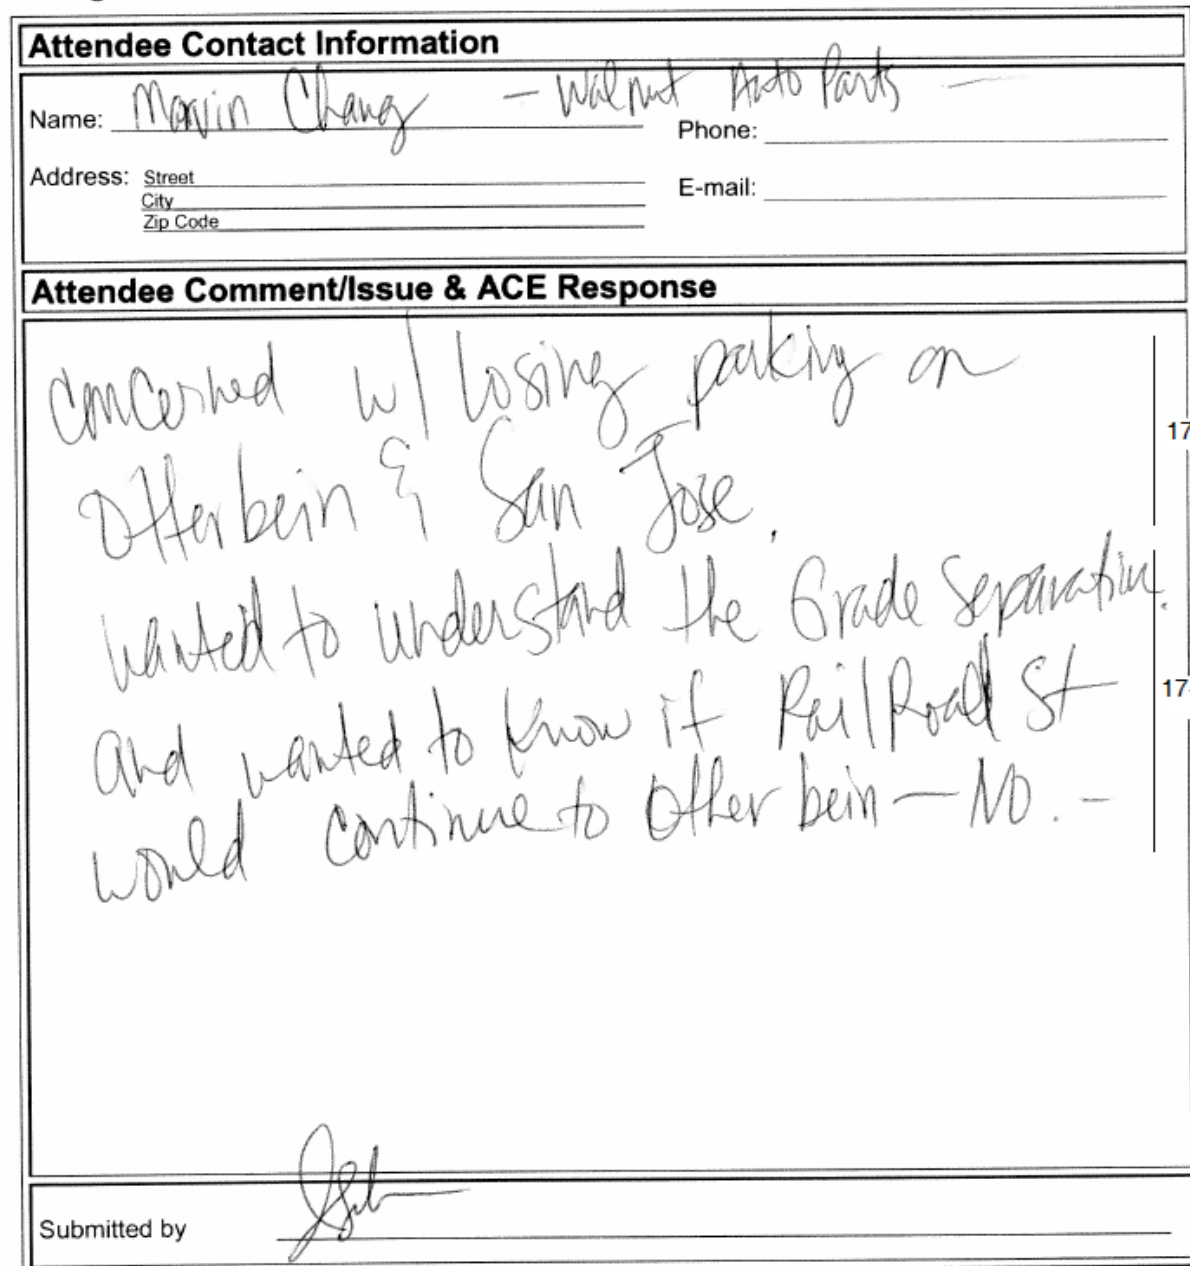 Attendee Contact Information
Name: Marvin Chang - Walnut Auto Parts -
Phone:
Address: Street
City
Zip Code
E-mail:
Attendee Comment/Issue & ACE Response
Concerned w/ losing parking on
Otterbein & San Jose.
wanted to understand the Grade Separation.
and wanted to know if RailRoad St
would continue to Otterbein - NO. -
17
17
Submitted by